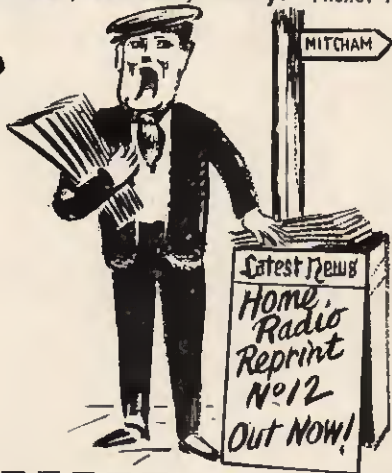 MITCHAM
Latest News
Home
Radio
Reprint
Nº12
Out Now!